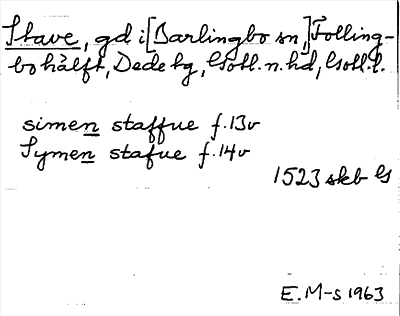 Stave, gd i [Barlingbo sn,] Folling-
bo hälft, Dede tg, Gotl. n. hd, Gotl. l.
simen staffue f. 13v
Symen stafue f. 14v
1523 skb G
E. M-s 1963